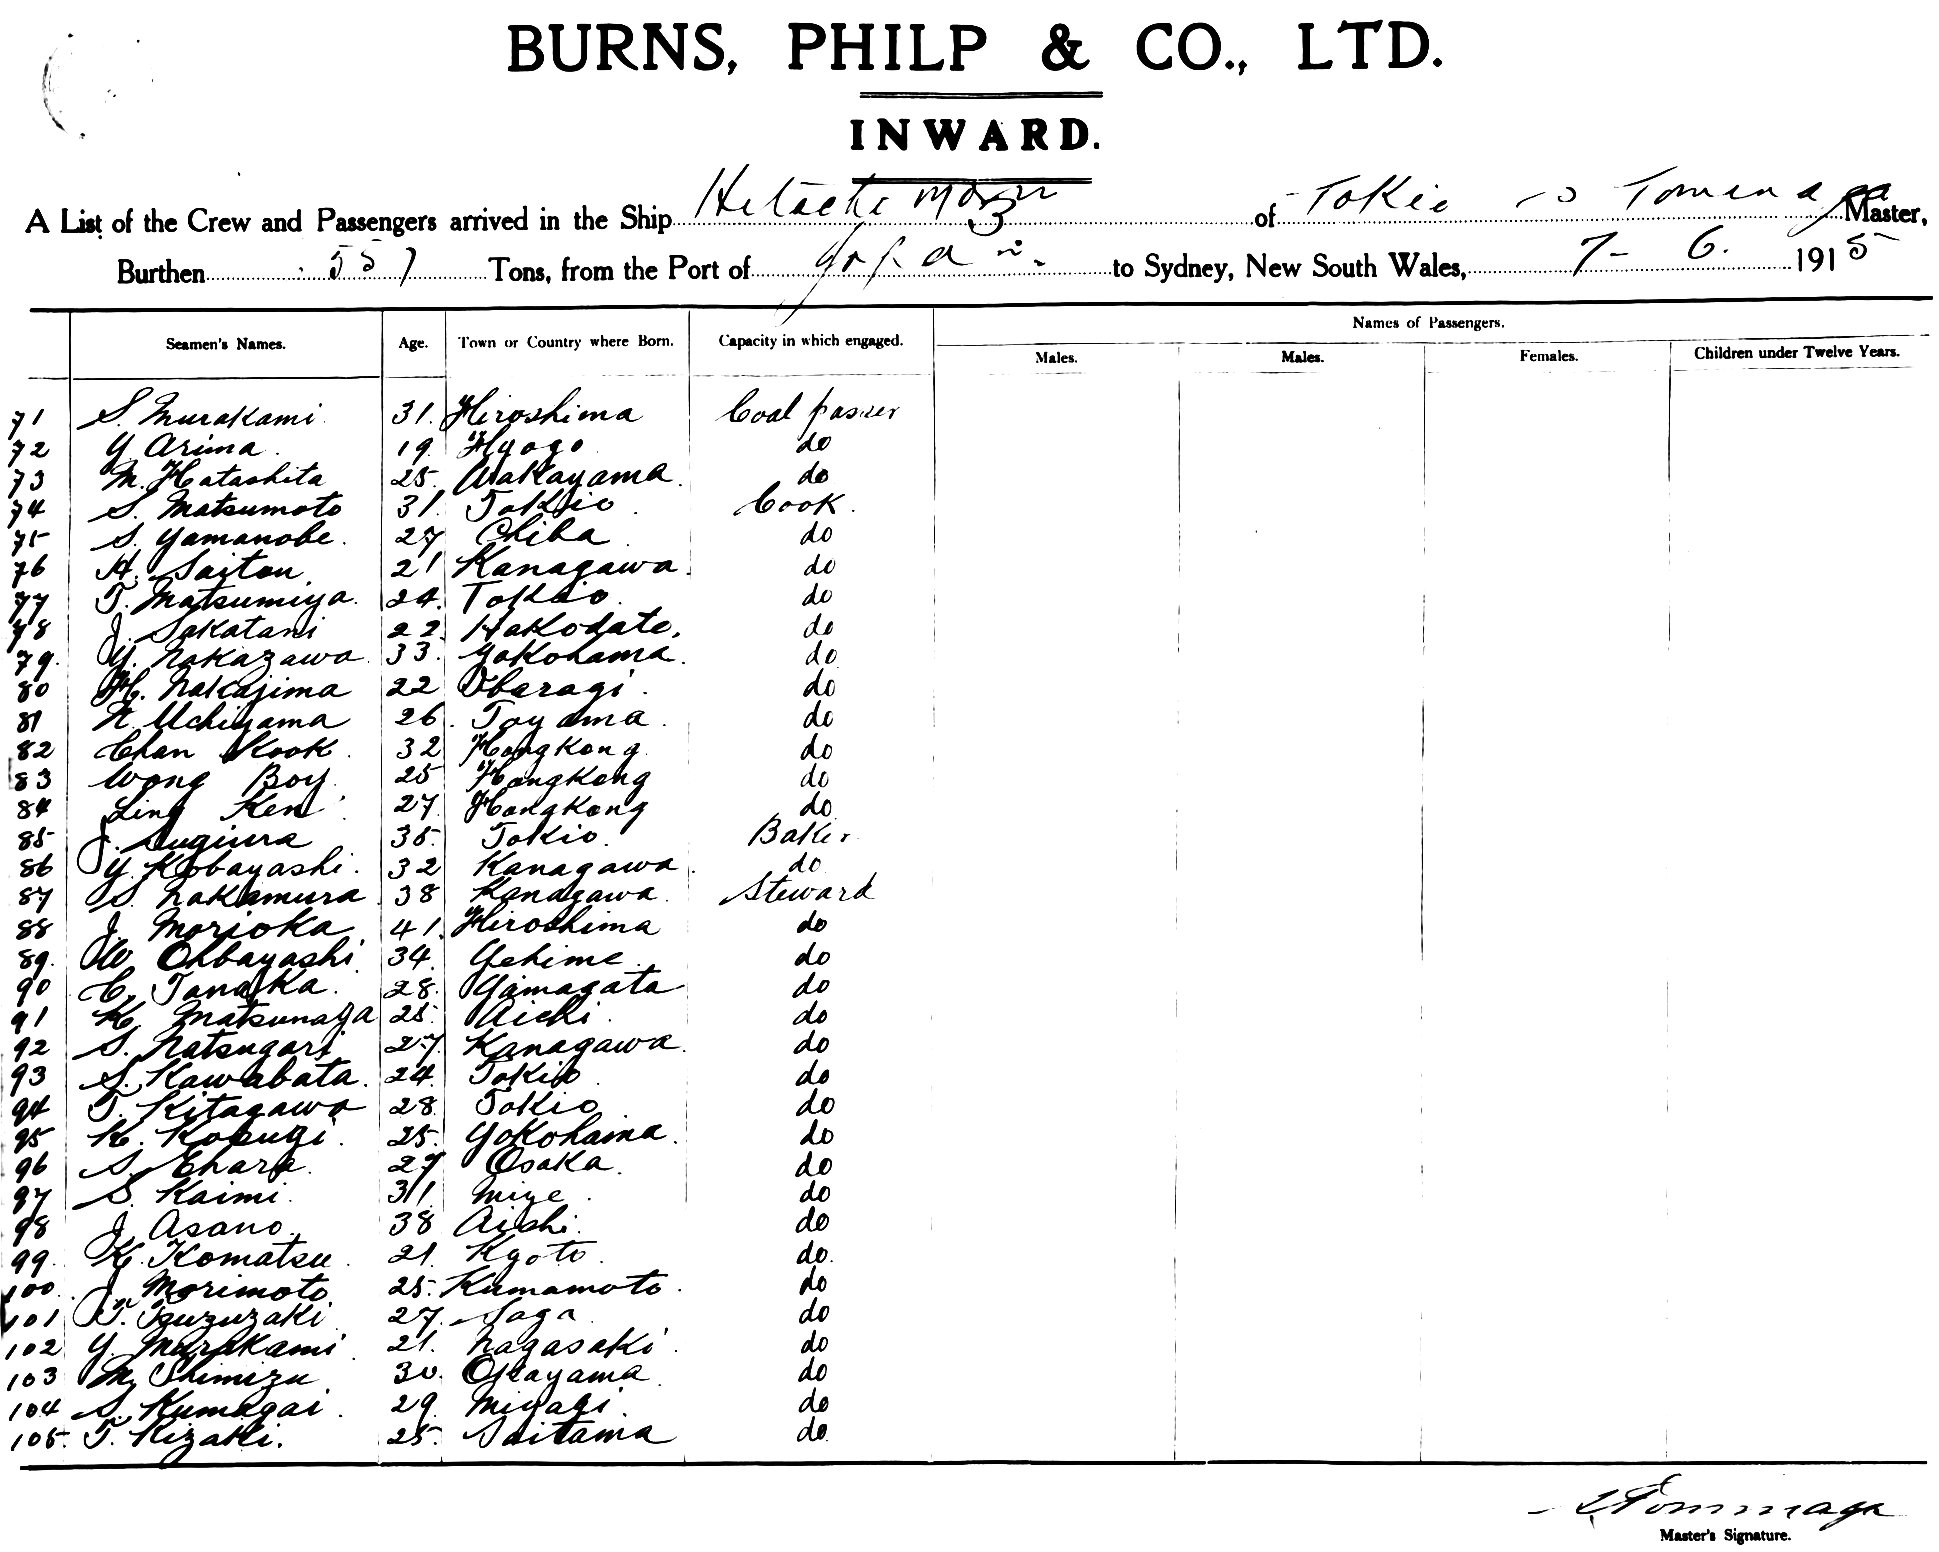 BURNS, PHILP & CO., LTD.
INWARD.
A List of the Crew and Passengers arrived in the Ship Hitachi Maru of Tokio Tominaga Master,
Burthen 557 Tons, from the Port of Japan. to Sydney, New South Wales, 7- 6. 1915
Names of Passengers.
Seamen's Names. Age. Town or Country where Born. Capacity in which engaged. Males. Males. Females. Children under Twelve Years.
71 S. Murakami. 31. Hiroshima Coal passer
72 Y. Arima. 19. Hyogo do
73 M. Hatashita 25. Wakayama. do
74 S. Matsumoto 31. Tokio. Cook.
75 S. Yamanobe. 27 Chiba do
76 H. Saitou 21 Kanagawa. do
77 T. Matsumiya. 24. Tokio. do
78 J. Sakatani 22 Hakodate. do
79. Y. Nakazawa. 33. Yokohama. do
80 H. Nakajima 22 Ibaragi. do
81 K. Uchiyama 26. Toyama. do
82 Chan Kook. 32 Hongkong do
83 Wong Boy. 25 Hongkong do
84 Ling Ken 27. Hongkong do
85 J. Sugiura 35. Tokio. Baker.
86 Y. Kobayashi. 32 Kanagawa. do
87 S. Nakamura 38 Kanagawa. Steward
88 J. Morioka 41. Hiroshima do
89. W. Ohbayashi 34. Yehime. do
90 C. Tanaka. 28. Yamagata do
91 K. Matsunaga 25. Aichi. do
92 S. Natsugari 27. Kanagawa. do
93 S. Kawabata. 24. Tokio. do
94 T. Kitagawa 28. Tokio. do
95 K. Kosugi. 25. Yokohama. do
96 S. Ehara. 27 Osaka. do
97 S. Kaimi. 31. Miye. do
98 J. Asano. 38 Aichi. do
99. K. Komatsu. 21. Kyoto. do.
100. J. Morimoto 25. Kumamoto. do
101 T. Tsuzuzaki 27. Saga do
102 Y. Murakami 21. Nagasaki. do
103 M. Shimizu 30. Okayama do
104 S. Kumagai. 29. Miyagi. do
105. T. Kizaki. 25. Saitama do
Tominaga
Master's Signature.